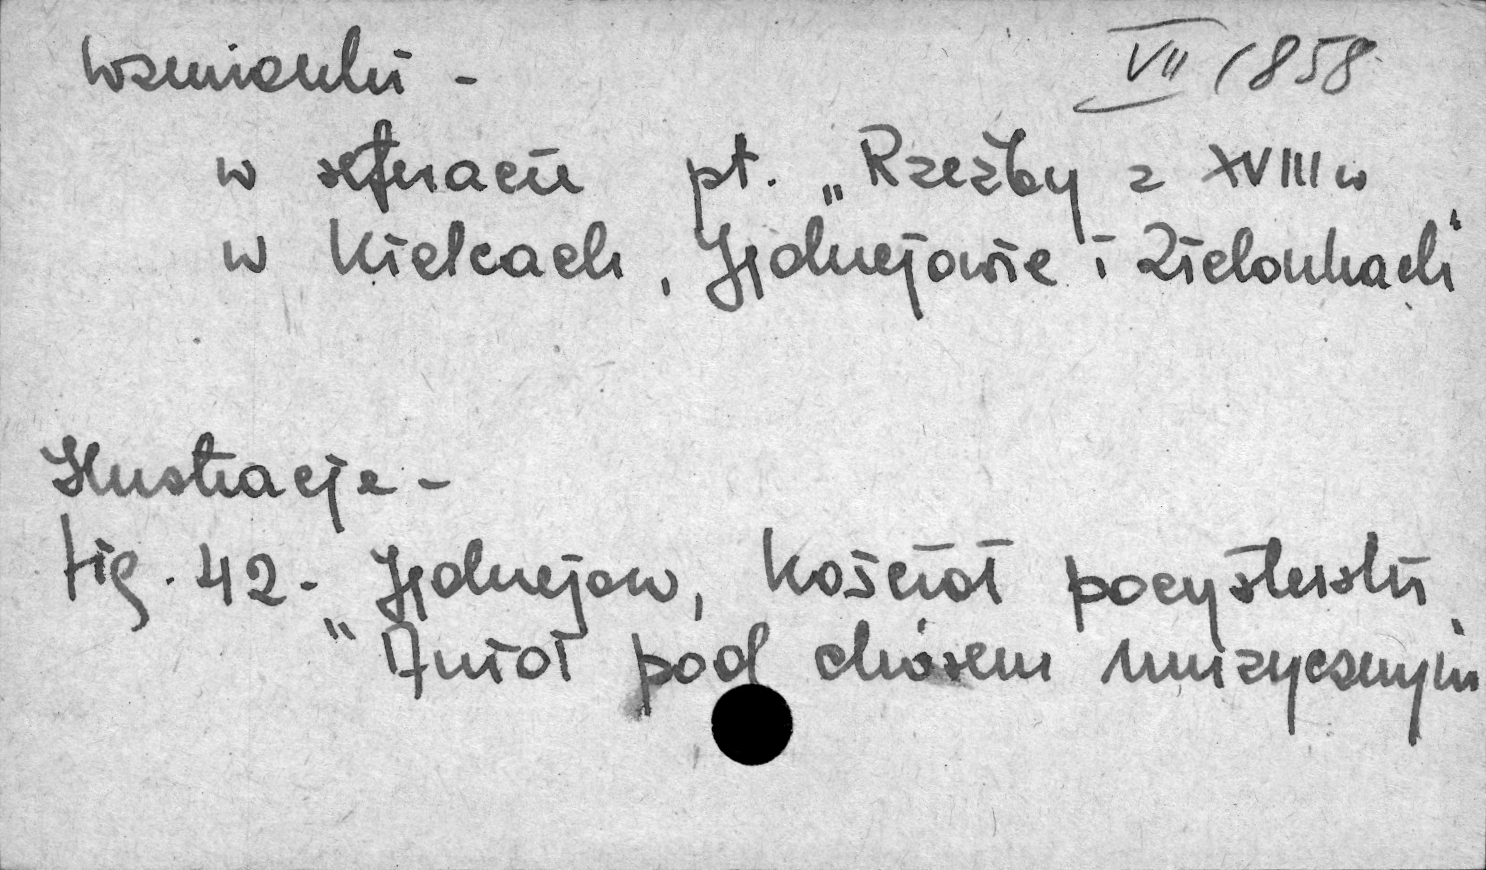 VII 1858
Wzmianki -
w referacie pt. „Rzeźby z XVIII w
w Kielcach, Jędrzejowie i Zielonkach"
Ilustracje -
fig. 42 - Jędrzejow, Kościół pocysterski
„Anioł pod chórem muzycznym"